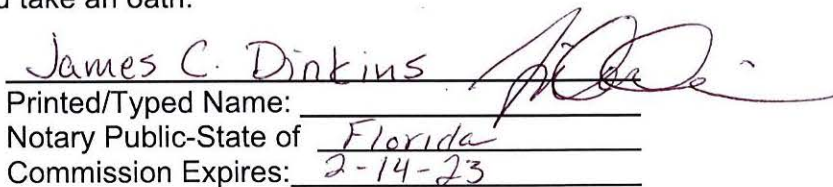 d take an oath.
James C. Dinkins
Printed/Typed Name:
Notary Public-State of Florida
Commission Expires: 2-14-23